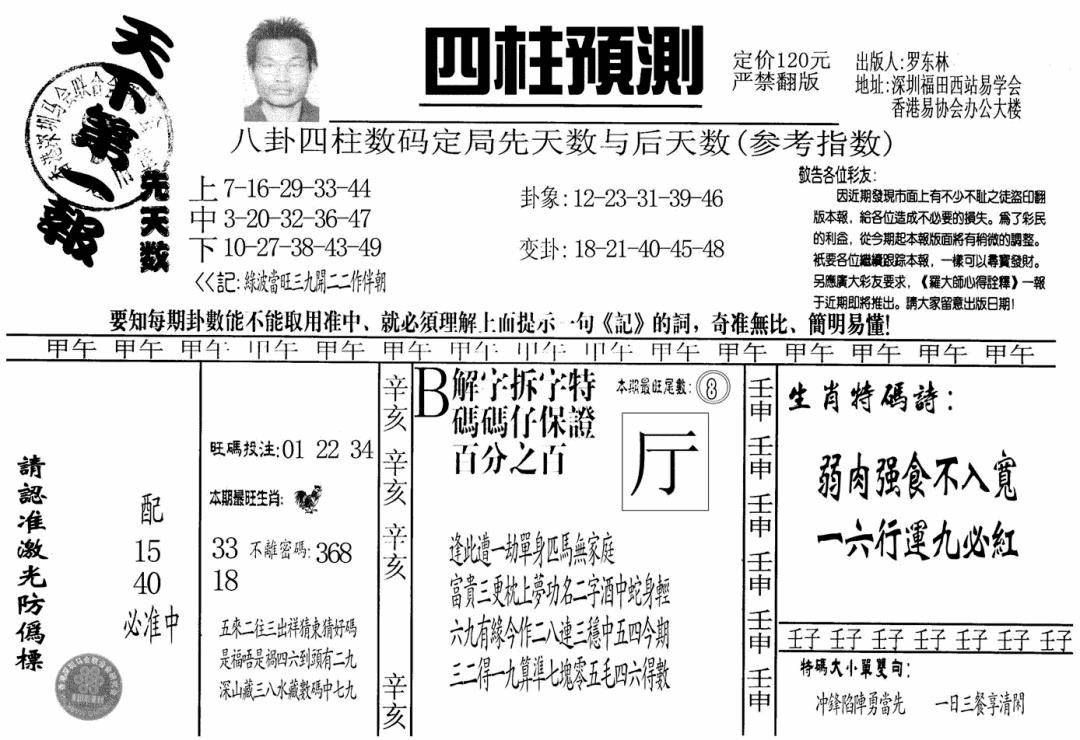 天下第一報
先天数
四柱預測
定价120元
严禁翻版
出版人:罗东林
地址:深圳福田西站易学会
香港易协会办公大楼
八卦四柱数码定局先天数与后天数(参考指数)
上7-16-29-33-44
中3-20-32-36-47
下10-27-38-43-49
<<記:綠波當旺三九開二二作伴朝
卦象:12-23-31-39-46
变卦:18-21-40-45-48
敬告各位彩友:
因近期發現市面上有不少不耻之徒盜印翻
版本報,給各位造成不必要的損失。為了彩民
的利益,從今期起本報版面將有稍微的調整。
衹要各位繼續跟踪本報,一樣可以尋寶發財。
另應廣大彩友要求,《羅大師心得詮釋》一報
于近期即將推出。請大家留意出版日期!
要知每期卦數能不能取用准中、就必須理解上面提示一句《記》的詞,奇准無比、簡明易懂!
甲午 甲午 甲午 甲午 甲午 甲午 甲午 甲午 甲午 甲午 甲午 甲午 甲午 甲午 甲午
請認准激光防僞標
配
15
40
必准中
旺碼投注:01 22 34
本期最旺生肖:
33 不離密碼:368
18
五來二往三出祥猜東猜好碼
是福唔是禍四六到頭有二九
深山藏三八水藏數碼中七九
辛亥
辛亥
辛亥
辛亥
B解字拆字特
碼碼仔保證
百分之百
本期最旺尾數:8
厅
逢此遭一劫單身匹馬無家庭
富貴三更枕上夢功名二字酒中蛇身輕
六九有緣今作二八連三穩中五四今期
三二得一九算準七塊零五毛四六得數
壬申
壬申
壬申
壬申
壬申
壬申
生肖特碼詩:
弱肉强食不入寬
一六行運九必紅
壬子 壬子 壬子 壬子 壬子 壬子 壬子
特碼大小單雙句:
冲鋒陷陣勇當先 一日三餐享清閑